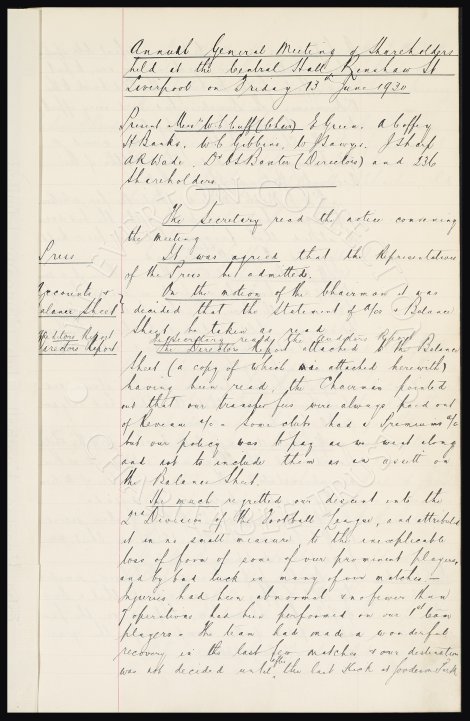 Annual General Meeting of Shareholders
held at the Central Hall Renshaw St
Liverpool on Friday 13th June 1930
Present Messrs W C Cuff (Chair) E Green, A Coffey
H Banks, W C Gibbins, W J Sawyer, J Sharp
A R Wade, Dr C S Baxter (Directors) and 236
Shareholders
The Secretary read the notice convening
the meeting
Press
It was agreed that the Representatives
of the Press be admitted.
Accounts &
Balance Sheet
On the motion of the Chairman it was
decided that the Statement of a/cs & Balance
Sheet be taken as read
Auditors Report
Directors Report
The Secretary read the Auditors Report
The Directors Report attached to the Balance
Sheet (a copy of which was attached herewith)
having been read, the Chairman pointed
out that our transfer fees were always paid out
of Revenue a/c - some clubs had a Premiums a/c
but our policy was to pay as we went along
and not to include them as an asset on
the Balance Sheet.
He much regretted our descent into the
2nd Division of the Football League, and attributed
it in no small measure to the inexplicable
loss of form of some of our prominent players,
and by bad luck in many of our matches -
Injuries had been abnormal & no fewer than
7 operations had been performed on our 1st team
players. The team had made a wonderful
recovery in the last few matches & our destination
was not decided until after the last Kick at Goodison Park